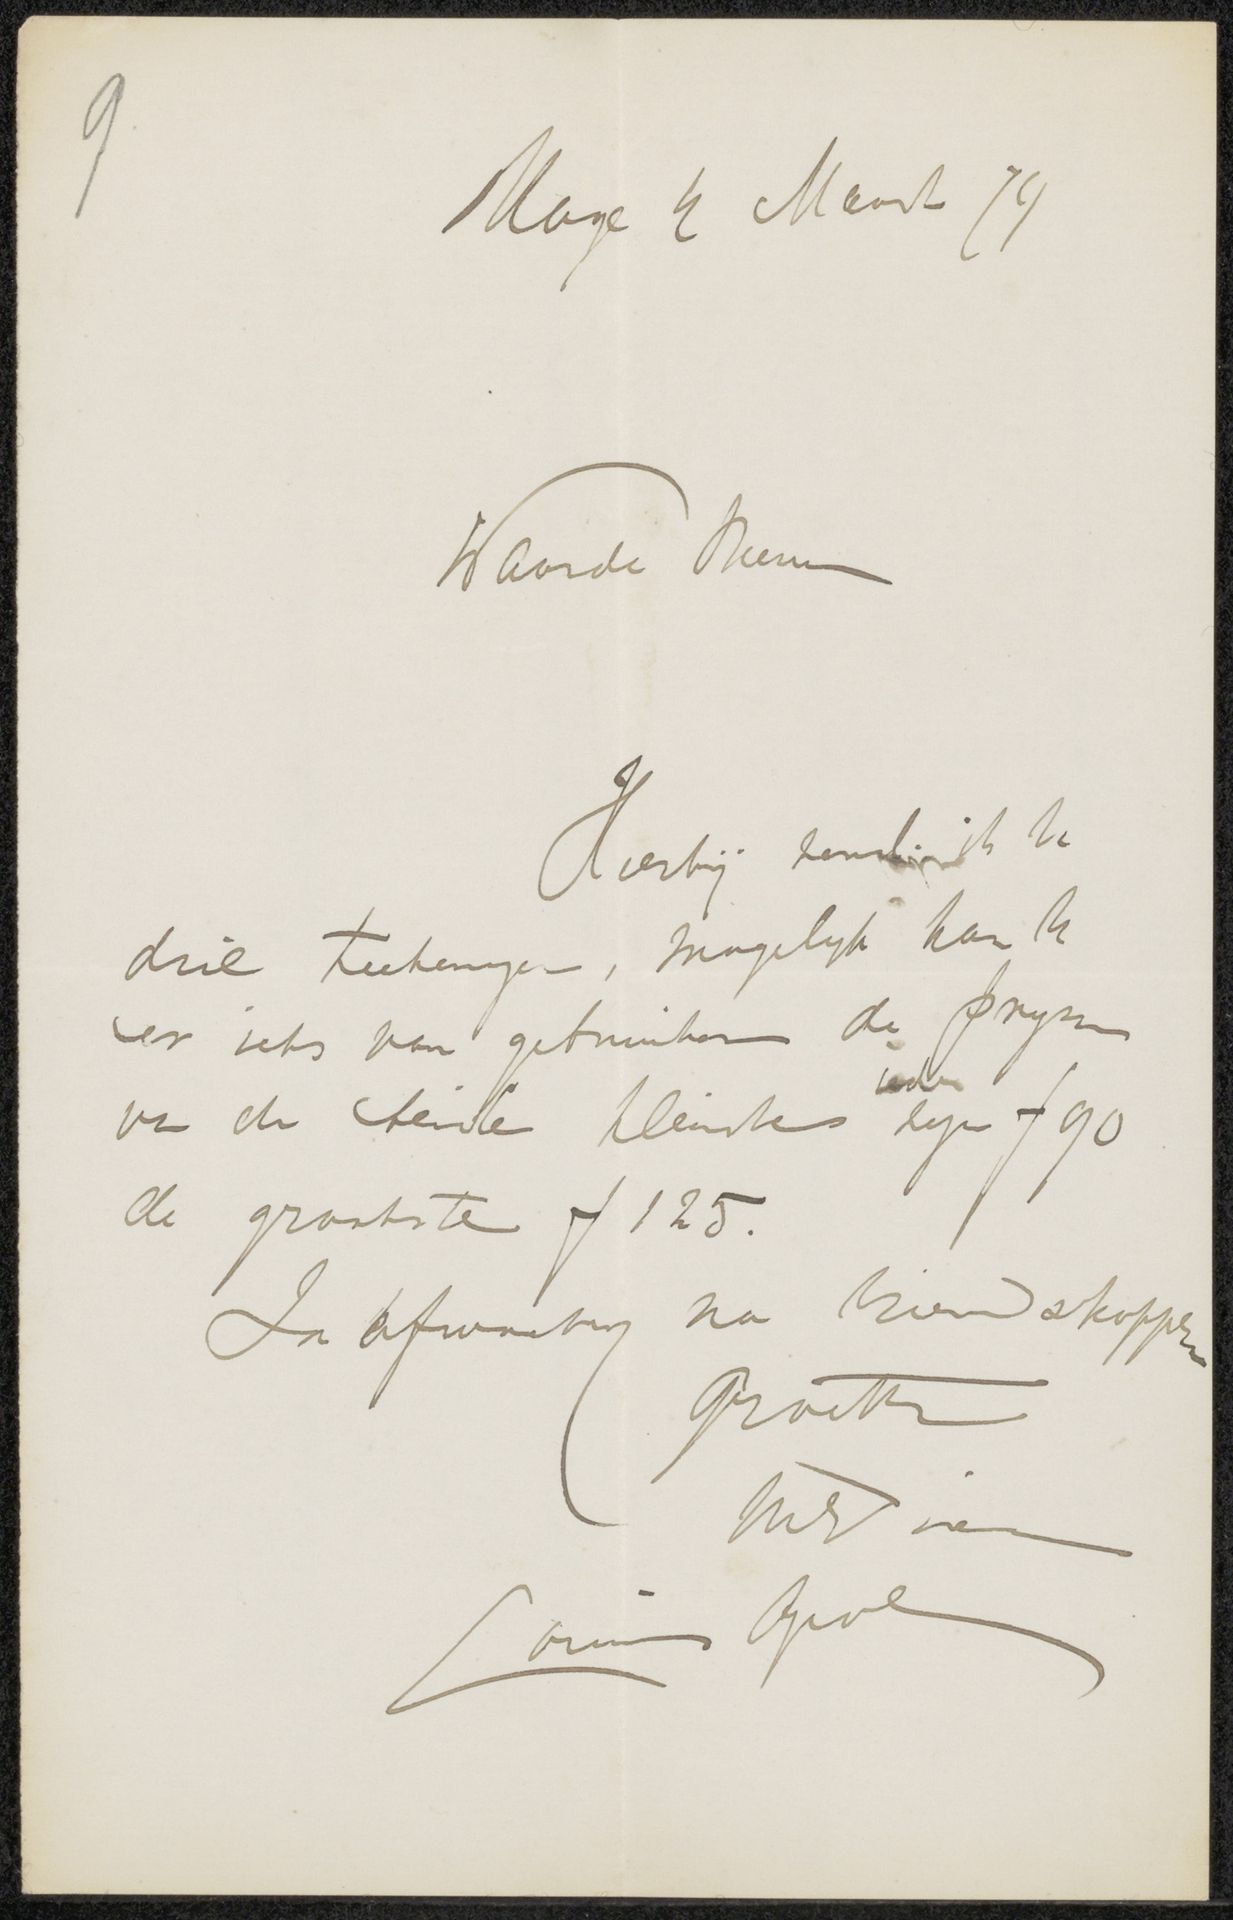 9
Hage 4 Maart 79
Waarde Heer
Hierbij zend ik U
drie teekeningen, mogelijk kan U
er iets van gebruiken de prijzen
van de beide kleinste ieder zijn f 90
de grootste f 125.
In afwachting na vriendschappen
Groette
Louis Apol